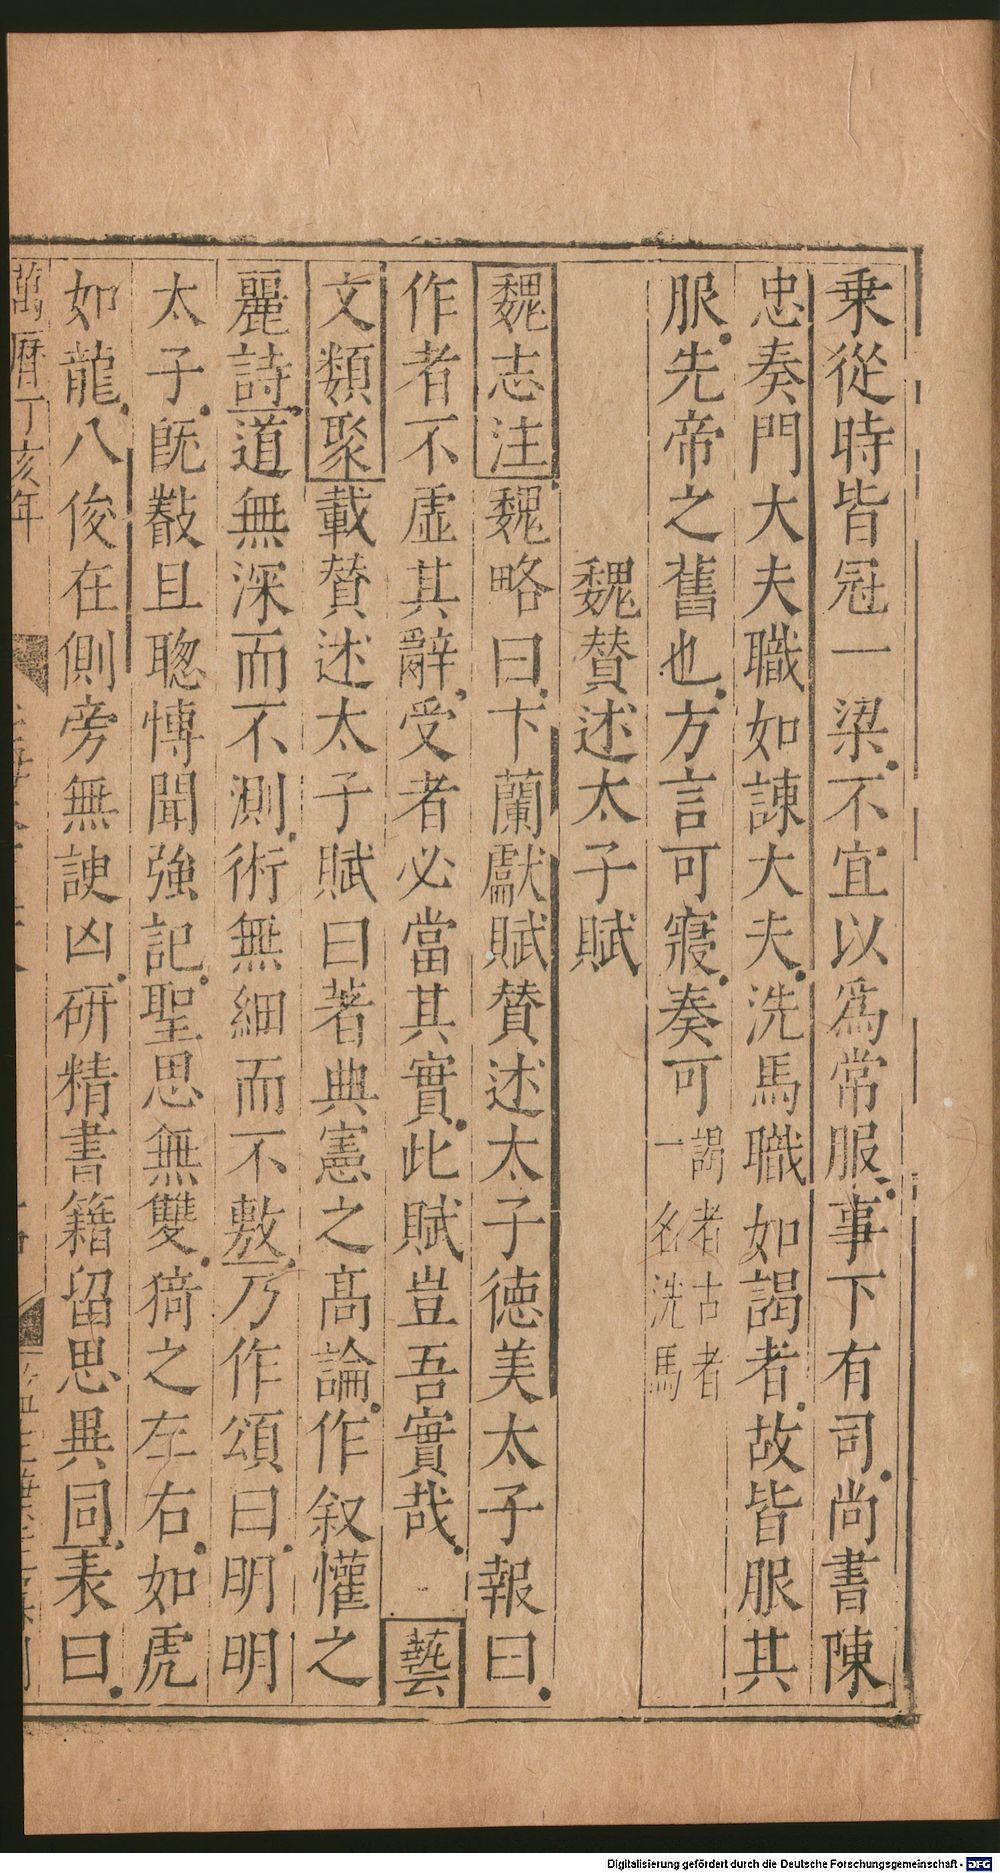 乗從時皆冠一梁不宜以爲常服事下有司尚書陳
忠奏門大夫職如諌大夫洗馬職如謁者故皆服其
服先帝之舊也方言可寢奏可謁者古者一名洗馬
魏賛述太子賦
魏志注魏略曰卞蘭獻賦賛述太子德美太子報曰
作者不虛其辭受者必當其實此賦豈吾實哉藝
文類聚載賛述太子賦曰著典憲之高論作叙懽之
麗詩道無深而不測術無細而不敷乃作頌曰明明
太子旣叡且聰博聞強記聖思無雙猗之左右如虎
如龍八俊在側旁無諛凶研精書籍留思異同表曰
萬曆丁亥年
Digitalisierung gefördert durch die Deutsche Forschungsgemeinschaft - DFG